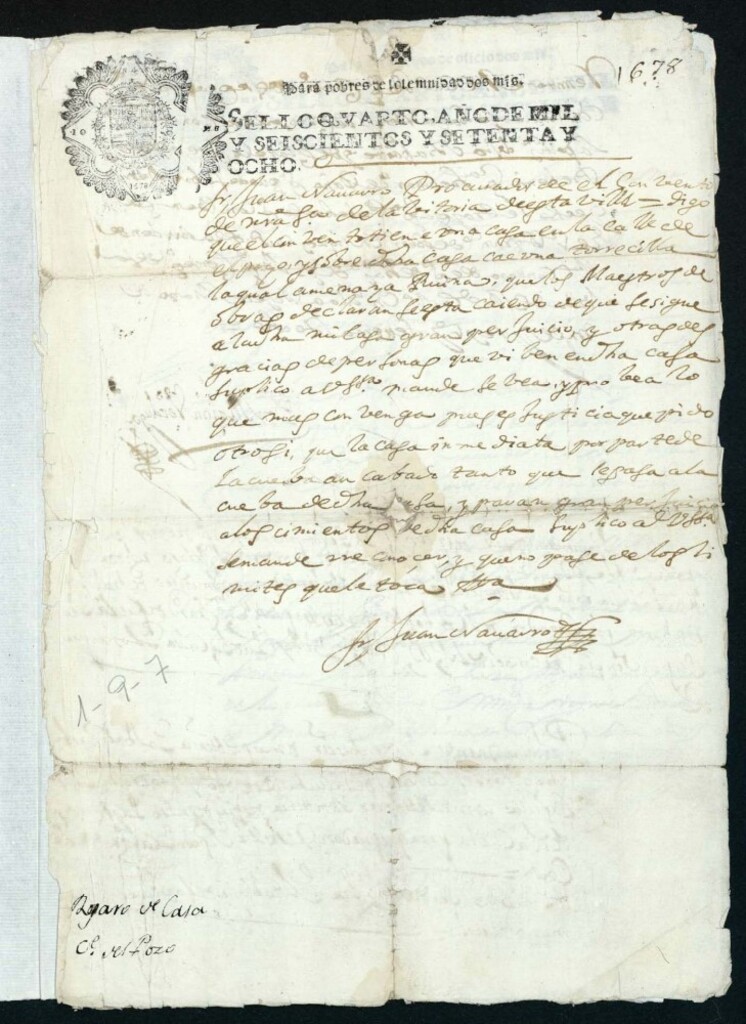 1678
Para pobres de solemnidad dos mrs.
SELLO QVARTO, AÑO DE MIL
Y SEISCIENTOS Y SETENTA Y
OCHO.
Fr Juan Navarro Procurador de el Convento
de nra sa de la vitoria desta villa = digo
que el conven to tiene una casa en la calle de
el pozo, y sobre dha casa cae vna torrecilla
la qual amenaza Ruina, que los Maestros de
obras declaran se esta caiendo de que se sigue
a la dha mi casa gran perJuicio, y otras des
gracias de personas que vi ben en dha casa
suplico a V Ssa mande se vea, y pro bea lo
que mas con venga pues es Justicia que pido
otrosi, que la casa in me diata por parte de
la cueba an cabado tanto que se pasa a la
cue ba de dha casa, y paran gran perJuicio
a los cimientos de dha casa suplico a V Ssa
se mande rre conocer, y que no pase de los li
mites que le toca Jta
Fr Juan Navarro
1-9-7
Reparo de Casa
C. del Pozo